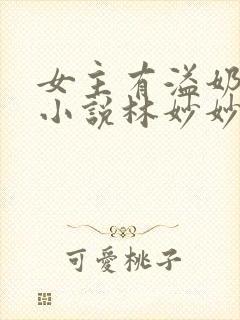 女主有溢奶
小説林妙妙
可愛桃子